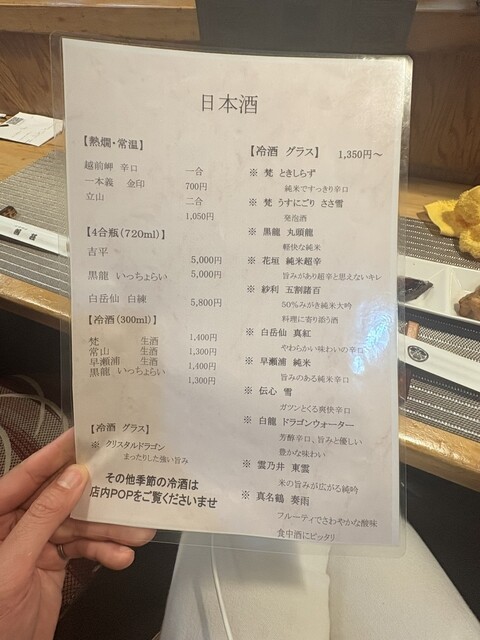 日本酒
【熱燗・常温】
越前岬 辛口 一合
一本義 金印 700円
立山 二合
1,050円
【4合瓶(720ml)】
吉平 5,000円
黒龍 いっちょらい 5,000円
白岳仙 白練 5,800円
【冷酒(300ml)】
梵 生酒 1,400円
常山 生酒 1,300円
早瀬浦 生酒 1,400円
黒龍 いっちょらい 1,300円
【冷酒 グラス】
※ クリスタルドラゴン
まったりした強い旨み
その他季節の冷酒は
店内POPをご覧くださいませ
【冷酒 グラス】 1,350円～
※ 梵 ときしらず
純米ですっきり辛口
※ 梵 うすにごり ささ雪
発泡酒
※ 黒龍 九頭龍
軽快な純米
※ 花垣 純米超辛
旨みがあり超辛と思えないキレ
※ 紗利 五割諸白
50%みがき純米大吟
料理に寄り添う酒
※ 白岳仙 真紅
やわらかい味わいの辛口
※ 早瀬浦 純米
旨みのある純米辛口
※ 伝心 雪
ガツンとくる爽快辛口
※ 白龍 ドラゴンウォーター
芳醇辛口、旨みと優しい
豊かな味わい
※ 雲乃井 東雲
米の旨みが広がる純吟
※ 真名鶴 奏雨
フルーティでさわやかな酸味
食中酒にピッタリ